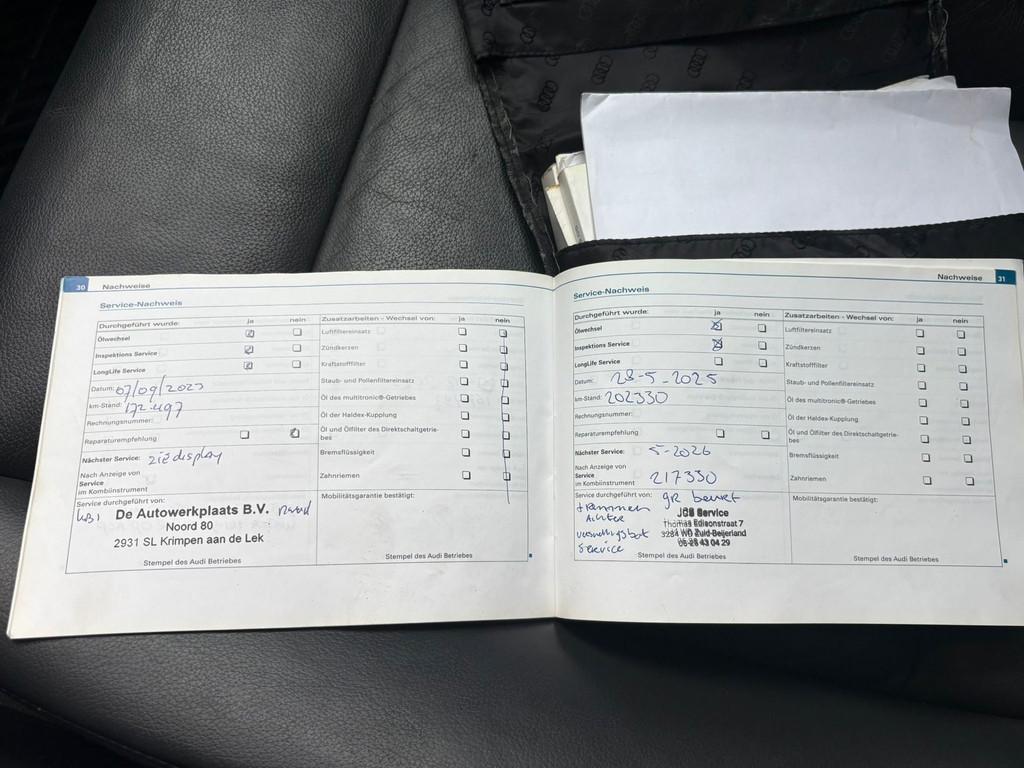 30 Nachweise
Service-Nachweis
Durchgeführt wurde: ja nein
Ölwechsel
Inspektions Service
LongLife Service
Datum: 07/09/2023
km-Stand: 172.497
Rechnungsnummer:
Reparaturempfehlung
Nächster Service: zie display
Nach Anzeige von
Service
im Kombiinstrument
Service durchgeführt von:
De Autowerkplaats B.V.
Noord 80
2931 SL Krimpen aan de Lek
Stempel des Audi Betriebes
Zusatzarbeiten - Wechsel von: ja nein
Luftfiltereinsatz
Zündkerzen
Kraftstofffilter
Staub- und Pollenfiltereinsatz
Öl des multitronic®-Getriebes
Öl der Haldex-Kupplung
Öl und Ölfilter des Direktschaltgetrie-
bes
Bremsflüssigkeit
Zahnriemen
Mobilitätsgarantie bestätigt:
Stempel des Audi Betriebes
Nachweise 31
Service-Nachweis
Durchgeführt wurde: ja nein
Ölwechsel
Inspektions Service
LongLife Service
Datum: 28-5-2025
km-Stand: 202330
Rechnungsnummer:
Reparaturempfehlung
Nächster Service: 5-2026
Nach Anzeige von
Service
im Kombiinstrument
217330
Service durchgeführt von: gr beurt
+ remmen
Achter
versnellingsbak
Service
Service
Thomas Edisonstraat 7
3284 WD Zuid-Beijerland
Stempel des Audi Betriebes
Zusatzarbeiten - Wechsel von: ja nein
Luftfiltereinsatz
Zündkerzen
Kraftstofffilter
Staub- und Pollenfiltereinsatz
Öl des multitronic®-Getriebes
Öl der Haldex-Kupplung
Öl und Ölfilter des Direktschaltgetrie-
bes
Bremsflüssigkeit
Zahnriemen
Mobilitätsgarantie bestätigt:
Stempel des Audi Betriebes